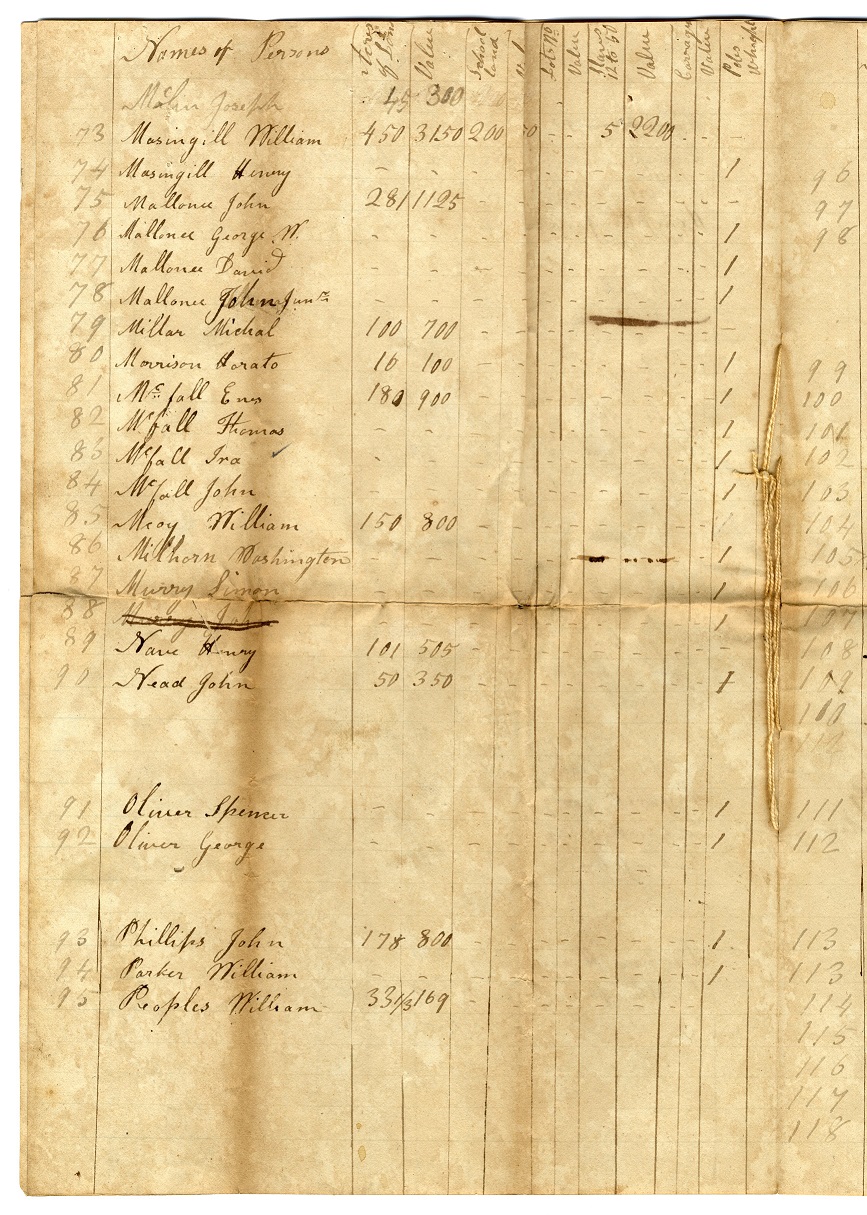 Names of Persons Acres of Land Value School land Lots No Value Slaves 12 to 50 Value Carriages Value Poles Whight
Mclin Joseph 45 300
73 Masingill William 450 3150 200 50 - - 5 2200 - - -
74 Masingill Henry - - - - - - - - - - 1 96
75 Mallonee John 281 1125 - - - - - - - - - 97
76 Mallonee George W. - - - - - - - - - - 1 98
77 Mallonee David - - - - - - - - - - 1
78 Mallonee John Junr - - - - - - - - - - 1
79 Millar Michal 100 700 - - - - - - -
80 Morrison Horato 16 100 - - - - - - - - 1 99
81 Mc fall Enos 180 900 - - - - - - - - 1 100
82 Mcfall Thomas - - - - - - - - - - 1 101
83 Mcfall Ira ✓ - - - - - - - - - - 1 102
84 Mcfall John - - - - - - - - - - 1 103
85 Mcoy William 150 800 - - - - - - - - 1 104
86 Milhorn Washington - - - - - - - - 1 105
87 Murry Simon - - - - - - - - - - 1 106
88 Murry John - - - - - - - - - - 1 107
89 Nave Henry 101 505 - - - - - - - - - 108
90 Nead John 50 350 - - - - - - - - 1 109
110
112
91 Oliver Spencer - - - - - - - - - - 1 111
92 Oliver George - - - - - - - - - - 1 112
93 Phillips John 178 800 - - - - - - - - 1 113
94 Parker William - - - - - - - - - - 1 113
95 Peoples William 33 1/3 169 - - - - - - - - - 114
115
116
117
118